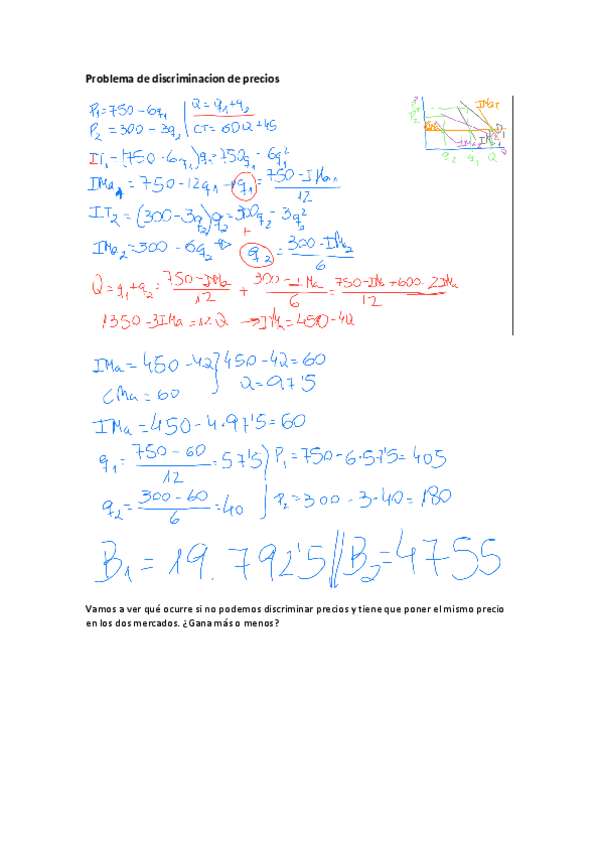 Problema de discriminacion de precios
P₁=750-6q₁ | Q=q₁+q₂
P₂=300-3q₂ | CT=60Q+45
IT₁=(750-6q₁)q₁=750q₁-6q₁²
IMa₁=750-12q₁→q₁=750-IMa₁/12
IT₂=(300-3q₂)q₂=300q₂-3q₂²
IMa₂=300-6q₂ q₂=300-IMa₂/6
Q=q₁+q₂=750-IMa/12+300-IMa/6=750-IMa+600-2IMa/12
1350-3IMa=12Q→IMa=450-4Q
IMa=450-4Q} 450-4Q=60
CMa=60 Q=97'5
IMa=450-4·97'5=60
q₁=750-60/12=57'5) P₁=750-6·57'5=405
q₂=300-60/6=40 P₂=300-3·40=180
B₁=19.792'5//B₂=4755
Vamos a ver qué ocurre si no podemos discriminar precios y tiene que poner el mismo precio
en los dos mercados. ¿Gana más o menos?